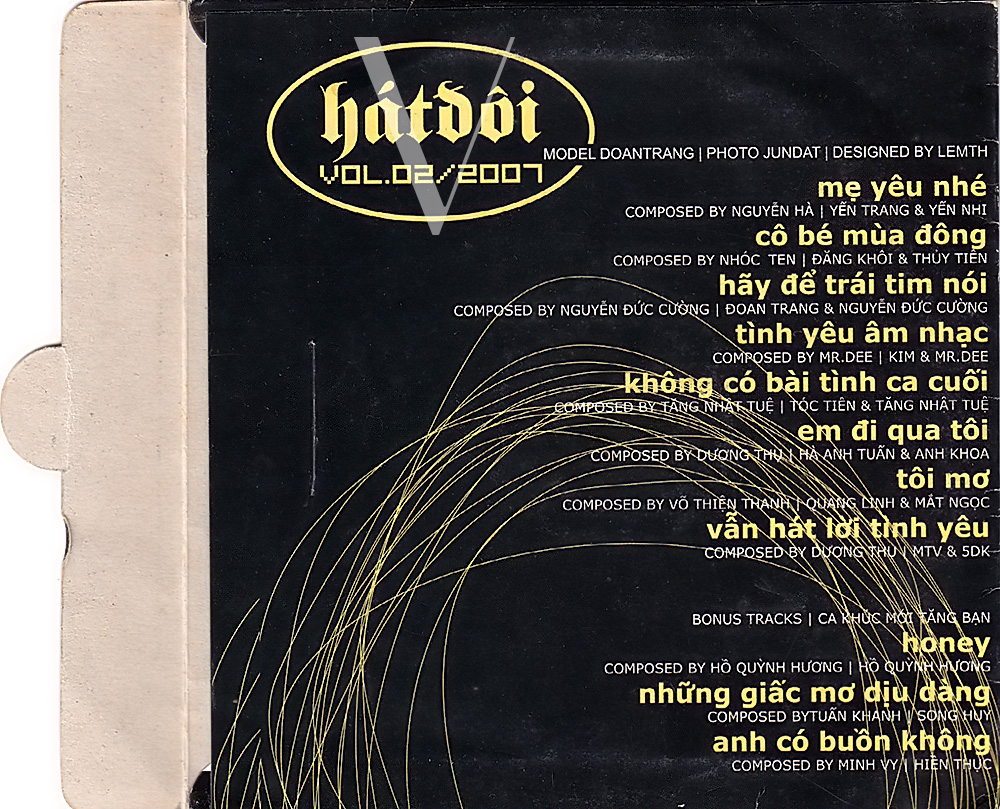 hátđôi
VOL.02/2007
MODEL DOANTRANG | PHOTO JUNDAT | DESIGNED BY LEMTH
mẹ yêu nhé
COMPOSED BY NGUYỄN HÀ | YẾN TRANG & YẾN NHI
cô bé mùa đông
COMPOSED BY NHÓC TEN | ĐĂNG KHÔI & THỦY TIÊN
hãy để trái tim nói
COMPOSED BY NGUYỄN ĐỨC CƯỜNG | ĐOAN TRANG & NGUYỄN ĐỨC CƯỜNG
tình yêu âm nhạc
COMPOSED BY MR.DEE | KIM & MR.DEE
không có bài tình ca cuối
COMPOSED BY TĂNG NHẬT TUỆ | TÓC TIÊN & TĂNG NHẬT TUỆ
em đi qua tôi
COMPOSED BY DƯƠNG THỤ | HÀ ANH TUẤN & ANH KHOA
tôi mơ
COMPOSED BY VÕ THIỆN THANH | QUANG LINH & MẮT NGỌC
vẫn hát lời tình yêu
COMPOSED BY DƯƠNG THỤ | MTV & 5DK
BONUS TRACKS | CA KHÚC MỚI TẶNG BẠN
honey
COMPOSED BY HỒ QUỲNH HƯƠNG | HỒ QUỲNH HƯƠNG
những giấc mơ dịu dàng
COMPOSED BYTUẤN KHANH | SONG HUY
anh có buồn không
COMPOSED BY MINH VY | HIỀN THỤC